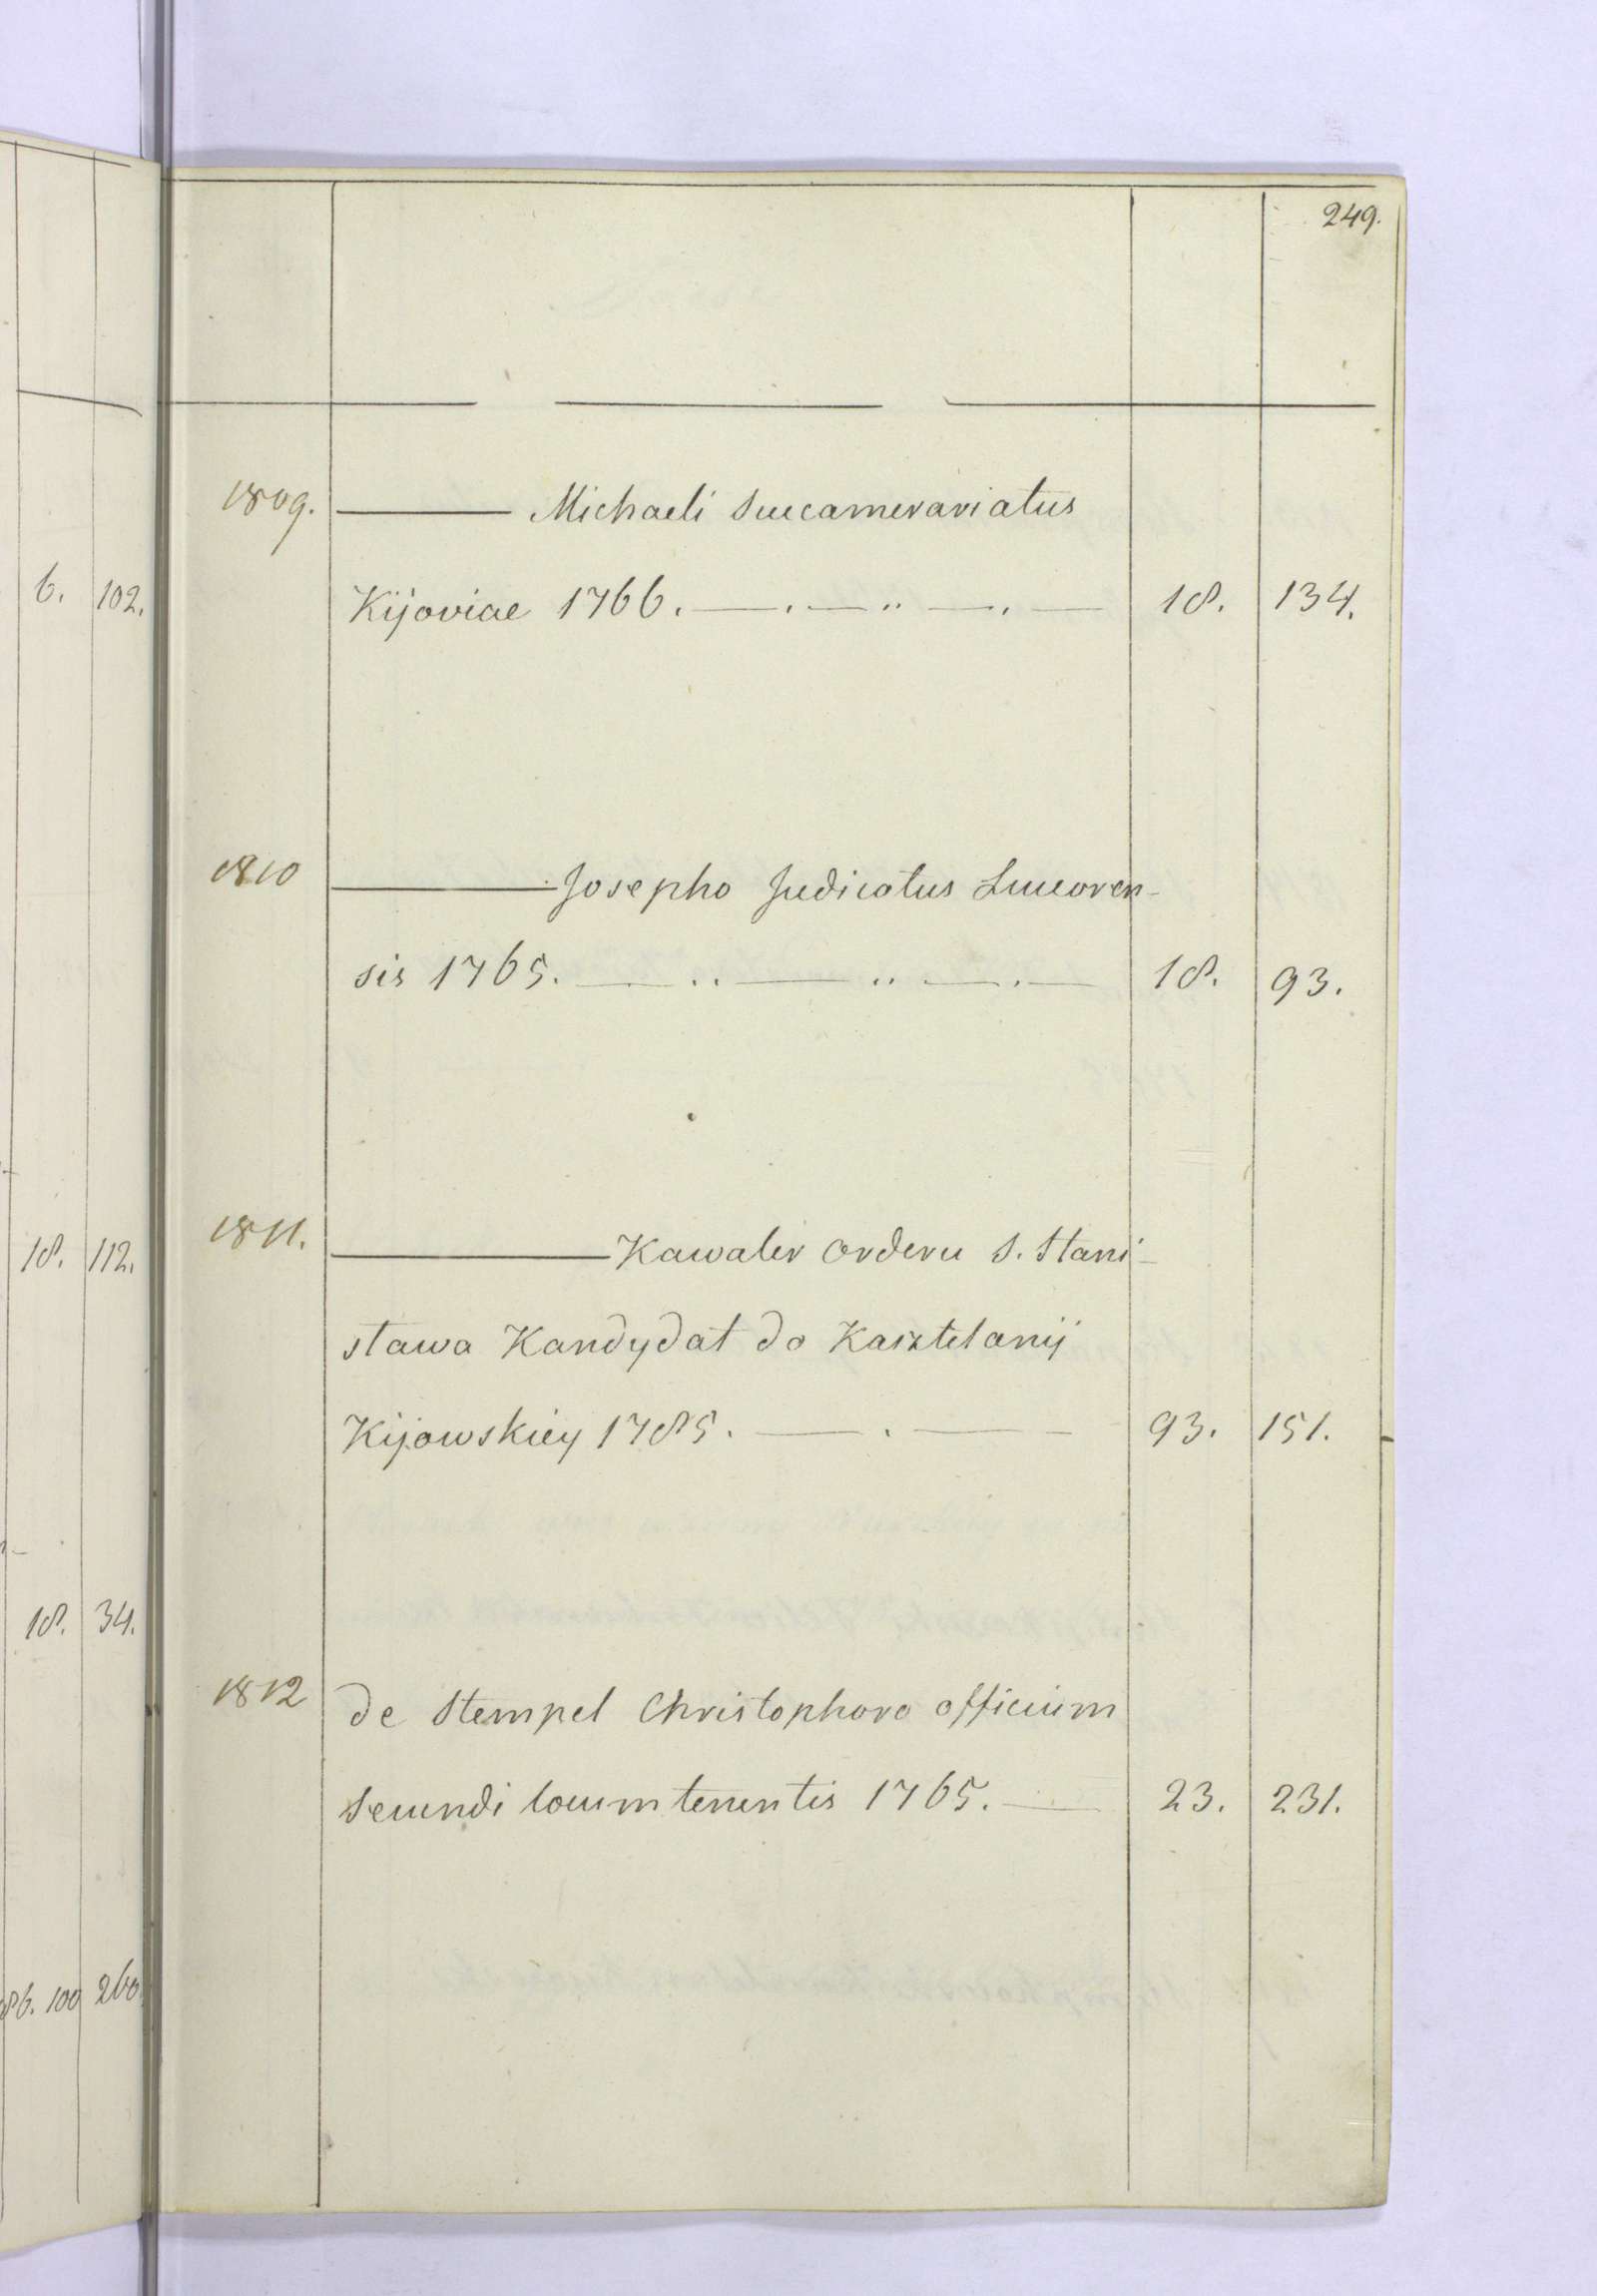 249.
1809. ——— Michaeli Succamerariatus
6. 102.
Kijoviae 1766. —.—..—.— 18. 134.
1810 ——— Josepho Judicatus Luceoren-
sis 1765. —..—..—.— 18. 93.
1811. ——— Kawaler Orderu S. Stani-
18. 112.
sława Kandydat do Kasztelanij
Kijowskiey 1785. —.—— 93. 151.
18. 34.
1812 de Stempel Christophoro officium
Secundi locumtenentis 1765. — 23. 231.
86. 100 260